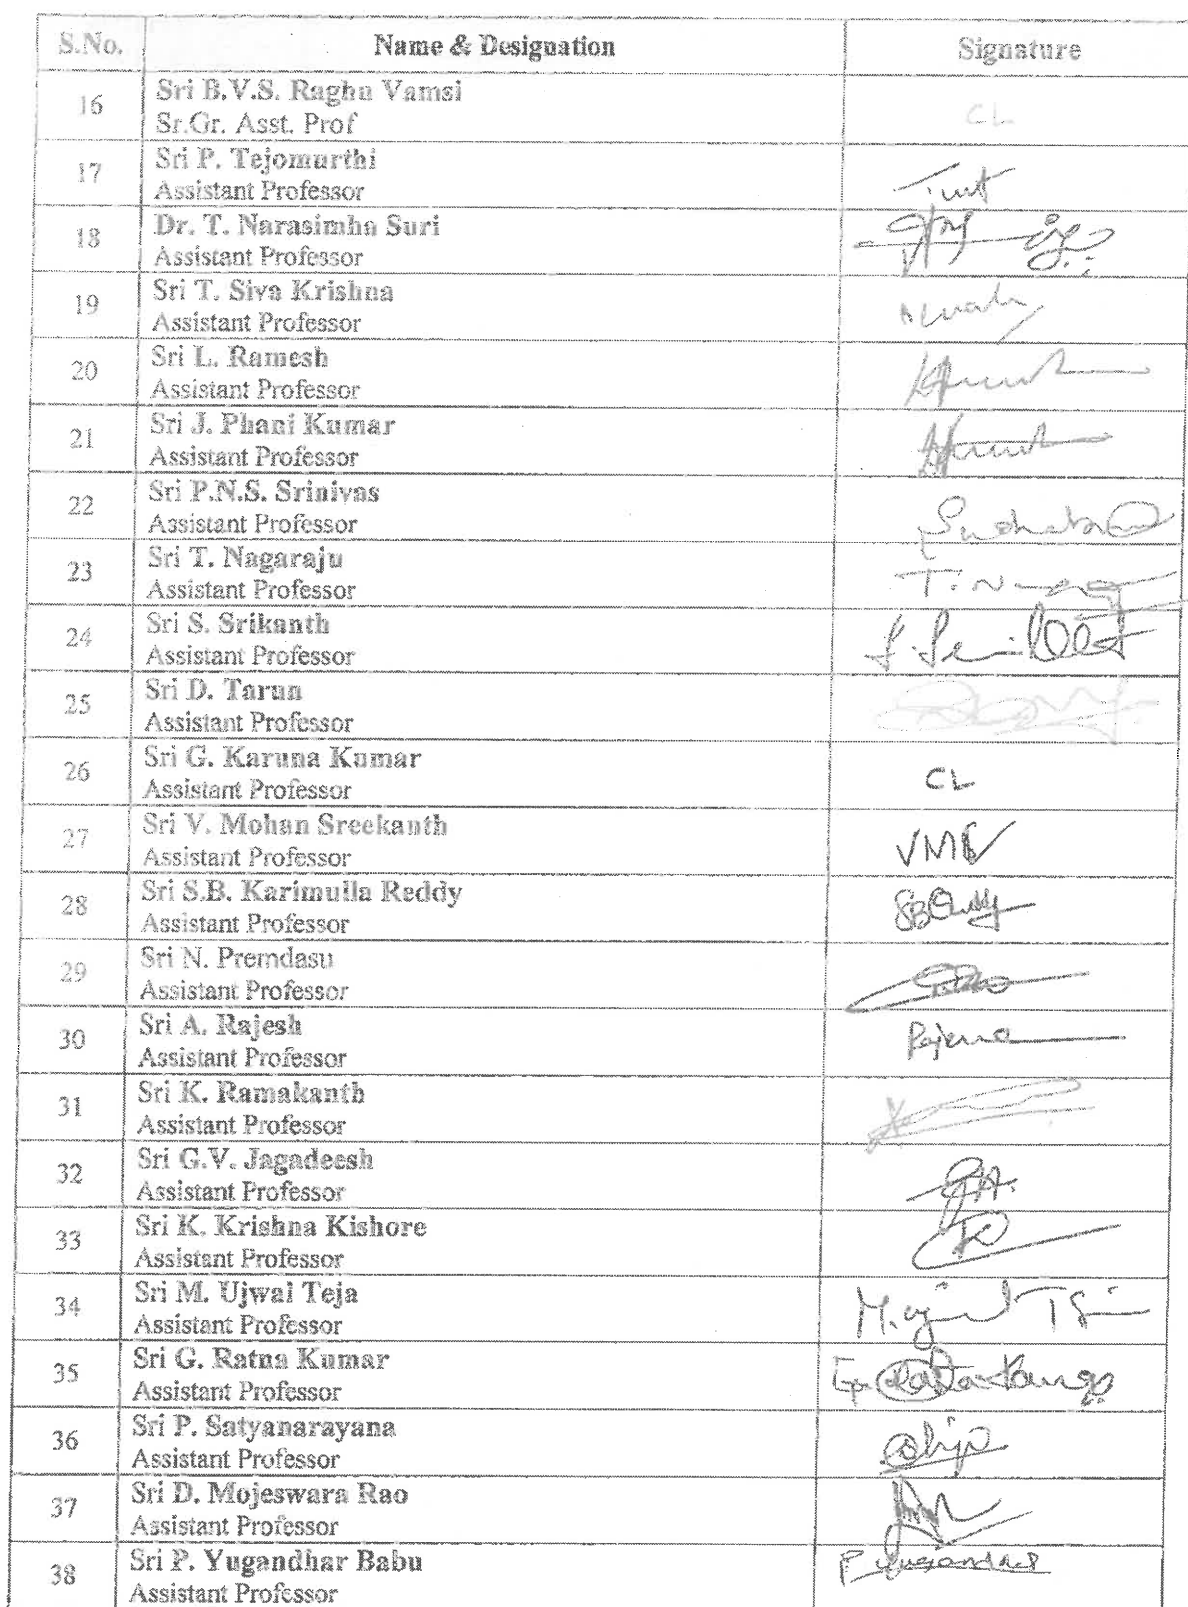 S.No. Name & Designation Signature
16 Sri B.V.S. Raghu Vamsi
Sr.Gr. Asst. Prof CL
17 Sri P. Tejomurthi
Assistant Professor
18 Dr. T. Narasimha Suri
Assistant Professor
19 Sri T. Siva Krishna
Assistant Professor
20 Sri L. Ramesh
Assistant Professor
21 Sri J. Phani Kumar
Assistant Professor
22 Sri P.N.S. Srinivas
Assistant Professor
23 Sri T. Nagaraju
Assistant Professor
24 Sri S. Srikanth
Assistant Professor
25 Sri D. Tarun
Assistant Professor
26 Sri G. Karuna Kumar
Assistant Professor CL
27 Sri V. Mohan Sreekanth
Assistant Professor
28 Sri S.B. Karimulla Reddy
Assistant Professor
29 Sri N. Premdasu
Assistant Professor
30 Sri A. Rajesh
Assistant Professor
31 Sri K. Ramakanth
Assistant Professor
32 Sri G.V. Jagadeesh
Assistant Professor
33 Sri K. Krishna Kishore
Assistant Professor
34 Sri M. Ujwal Teja
Assistant Professor
35 Sri G. Ratna Kumar
Assistant Professor
36 Sri P. Satyanarayana
Assistant Professor
37 Sri D. Mojeswara Rao
Assistant Professor
38 Sri P. Yugandhar Babu
Assistant Professor